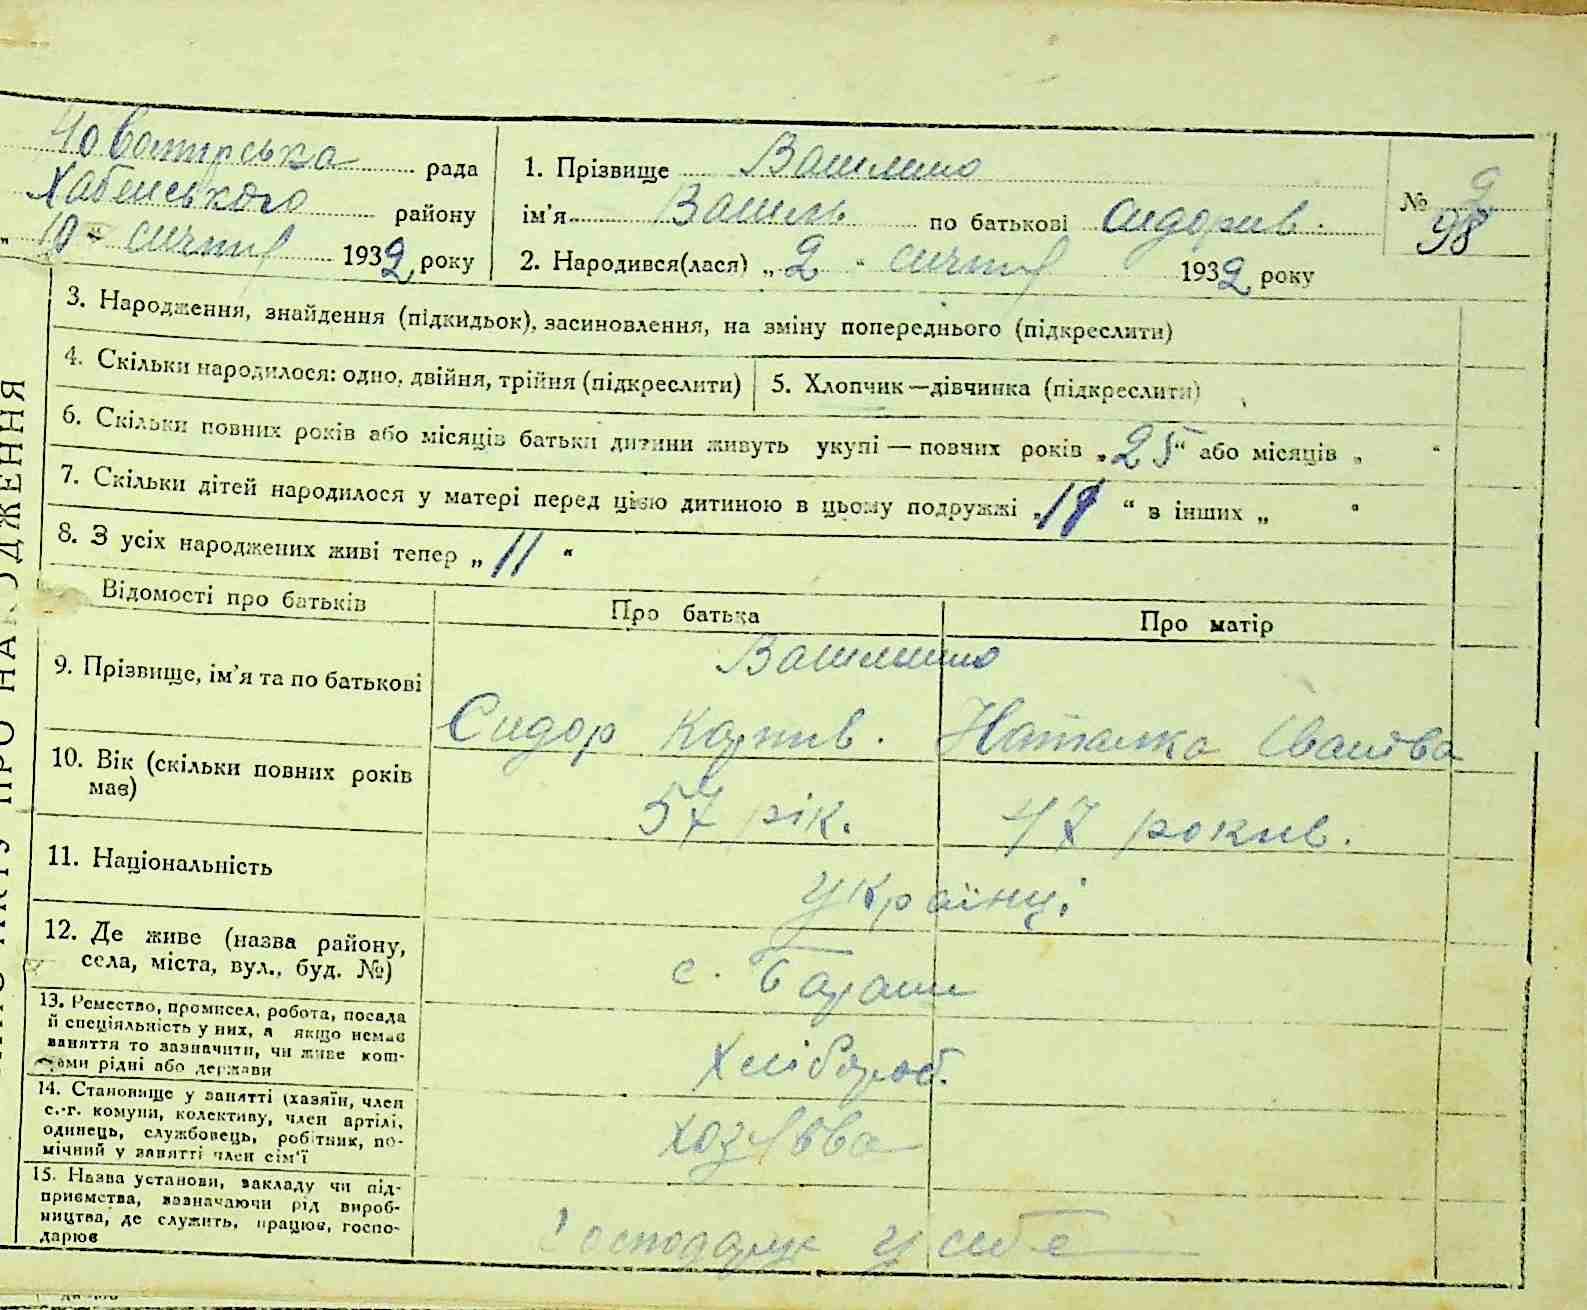 Новомирська рада
Хабенського району
„ 10 " січня 1932 року
1. Прізвище Вашленко
ім'я Василь по батькові Сидорів.
2. Народився(лася) „ 2 " січня 1932 року
№ 2
98
3. Народження, знайдення (підкидьок), засиновлення, на зміну попереднього (підкреслити)
4. Скільки народилося: одно, двійня, трійня (підкреслити)
5. Хлопчик—дівчинка (підкреслити)
6. Скільки повних років або місяців батьки дитини живуть укупі — повних років „ 25 " або місяців „ "
7. Скільки дітей народилося у матері перед цією дитиною в цьому подружжі „ " в інших „ "
8. З усіх народжених живі тепер „ 11 "
Відомості про батьків
Про батька
Про матір
9. Прізвище, ім'я та по батькові
Сидор Карпів. Наталка Іванівна
10. Вік (скільки повних років
має)
57 рік. 47 років.
11. Національність
українці
12. Де живе (назва району,
села, міста, вул., буд. №)
с.
13. Ремество, промисел, робота, посада
й спеціяльність у них, а якщо немає
заняття то зазначити, чи живе кош-
тами рідні або держави
Хлібороб.
14. Становище у занятті (хазяїн, член
с.-г. комуни, колективу, член артілі,
одинець, службовець, робітник, по-
мічний у занятті член сім'ї
15. Назва установи, закладу чи під-
приємства, зазначаючи рід вироб-
ництва, де служить, працює, госпо-
дарює
Господарює у себе